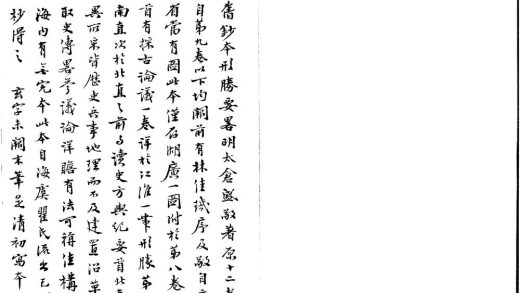 舊鈔本形勝要畧明太倉盛敬著原十二
自第九卷以下均闕前有林佳璣序及敬自
省當有圖此本僅存湖廣一圖附於第八卷
首有採古論議一卷詳於江淮一帶形勝第
南直次於北直之前与讀史方輿紀要首北
異所采皆歷史兵事地理而不及建置沿革
取史傳畧參議論詳贍有法可稱佳構
海內有無完本此本自海虞瞿氏流出已
抄得之 玄字未闕末筆是清初寫本